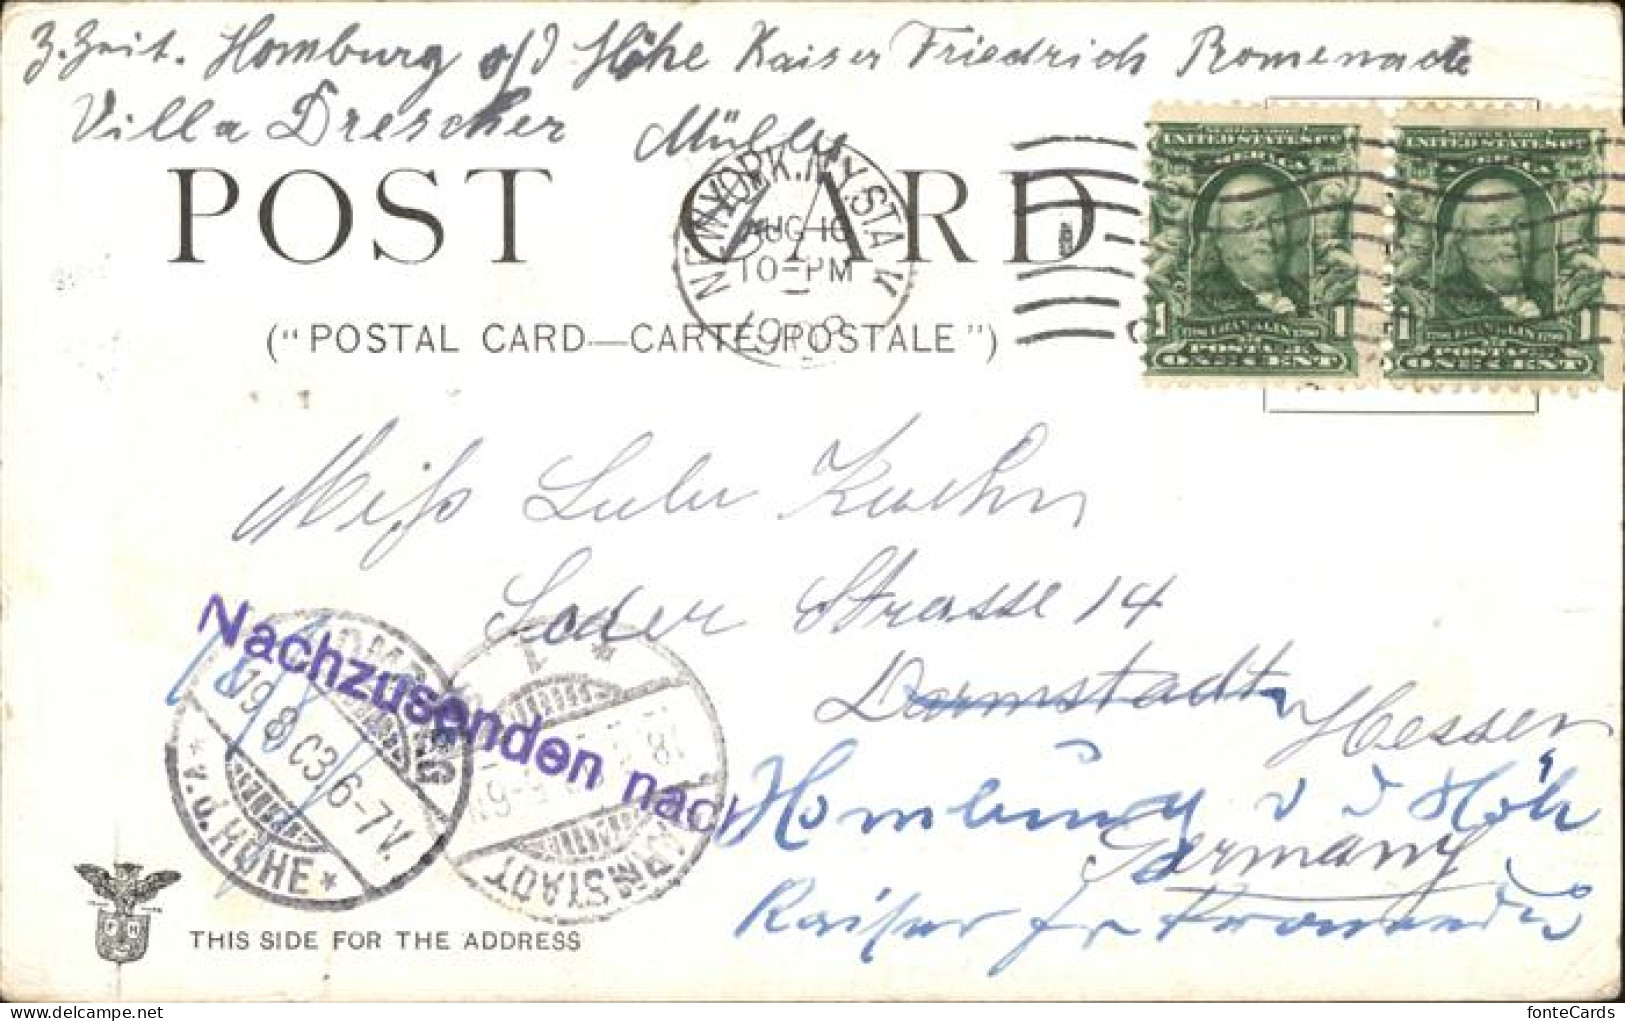 z. Zeit. Homburg v/d Höhe Kaiser Friedrich Promenade
Villa Drescher
POST CARD
("POSTAL CARD—CARTE POSTALE")
NEW YORK, N.Y. STA.
AUG 10
10-PM
UNITED STATES OF
AMERICA
1 FRANKLIN 1
POSTAGE
ONE CENT
UNITED STATES OF
AMERICA
1 FRANKLIN 1
POSTAGE
ONE CENT
Miss Lulu Kuehn
Soder Strasse 14
Darmstadt Hessen
Nachzusenden nach
Homburg v d Höh
Germany
Kaiser fr Promenade
HOMBURG
19 8 03 6-7V.
* v. d. HÖHE *
1 *
DARMSTADT
F H
THIS SIDE FOR THE ADDRESS
fonteCards